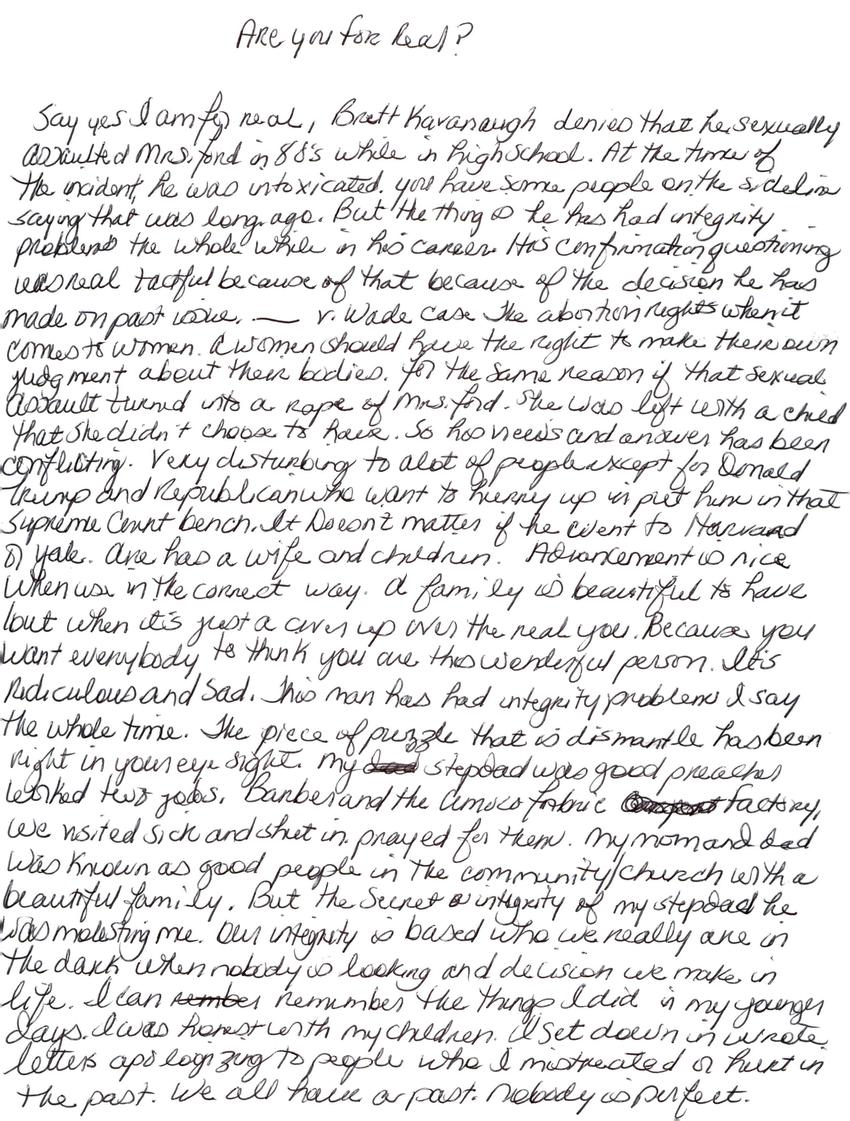 Are you for Real?
Say yes I am for real, Brett Kavanaugh denies that he sexually
assaulted Mrs. ford in 80's while in high school. At the time of
the incident, he was intoxicated. you have some people on the sideline
saying that was long ago. But the thing is he has had integrity
problems the whole while in his career. His confirmation questioning
was real tactful because of that because of the decision he has
made on past issue. — v. Wade case The abortion rights when it
comes to women. A women should have the right to make their own
judgment about their bodies. for the same reason if that sexual
assault turned into a rape of Mrs. ford. She was left with a child
that she didn't choose to have. So his views and answer has been
conflicting. Very disturbing to alot of people except for Donald
Trump and Republican who want to hurry up in put him in that
Supreme Court bench. It Doesn't matter if he went to Harvard
or yale. are has a wife and children. Advancement is nice
when use in the correct way. A family is beautiful to have
but when it's just a cover up over the real you. Because you
want everybody to think you are this wonderful person. It's
Ridiculous and Sad. This man has had integrity problems I say
the whole time. The piece of puzzle that is dismantle has been
right in your eye sight. My stepdad was good preacher
worked two jobs. Barber and the Amoco fabric factory,
we visited sick and shut in, prayed for them. My mom and dad
was known as good people in the community/church with a
beautiful family. But the Secret integrity of my stepdad he
was molesting me. Our integrity is based who we really are in
the dark when nobody is looking and decision we make in
life. I can remember the things I did in my younger
days. I was honest with my children. I set down in wrote
letters apologizing to people who I mistreated or hurt in
the past. We all have a past. Nobody is perfect.